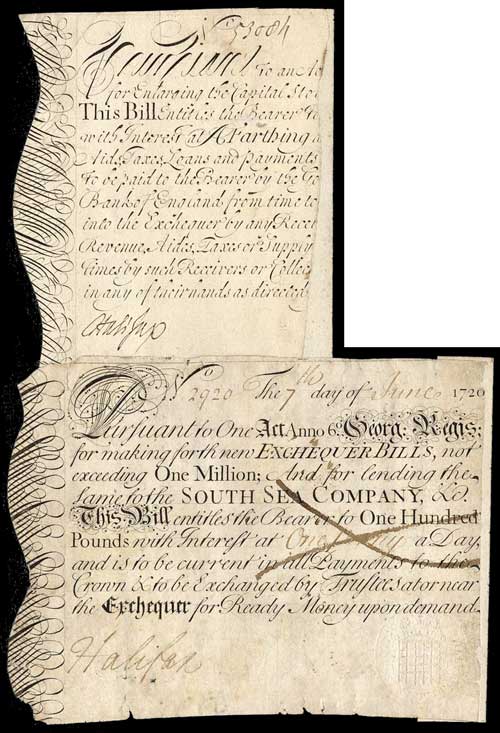 No 53084
Pursuant to an Act
for Enlarging the Capital Stoc
This Bill Entitles the Bearer to
with Interest at A Farthing a
Aids, Taxes, Loans and payments
to be paid to the Bearer by the Go
Bank of England from time to
into the Exchequer by any Recei
Revenue, Aides, Taxes or Supply
times by such Receivers or Collec
in any of their hands as directed
Halifax
No 2920 The 7th day of June 1720
Pursuant to One Act Anno 6o Georg. Regis;
for making forth new EXCHEQUER BILLS, not
exceeding One Million; And for lending the
same to the SOUTH SEA COMPANY, &c.
This Bill entitles the Bearer to One Hundred
Pounds with Interest at One Penny a Day,
and is to be current in all Payments to the
Crown & to be Exchanged by Trustees at or near
the Exchequer for Ready Money upon demand.
Halifax